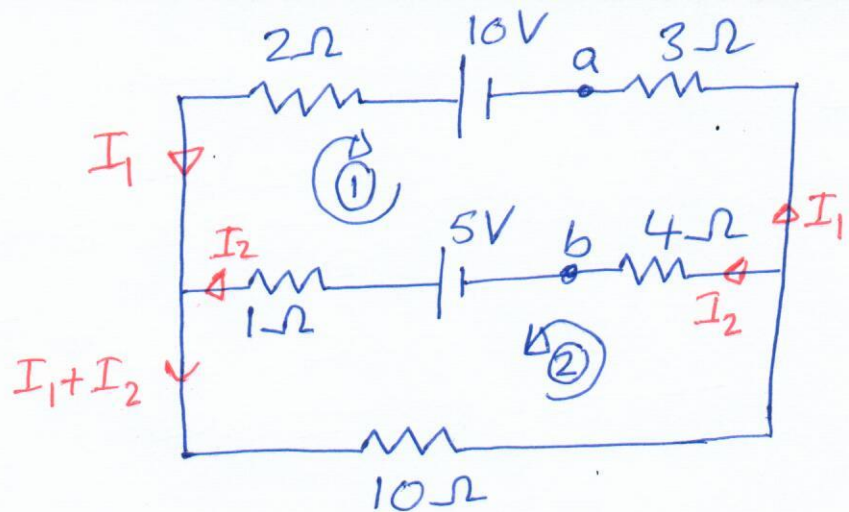 2Ω 10V a 3Ω
I₁ 1
I₂ 5V b 4Ω I₁
1Ω I₂
I₁+I₂ 2
10Ω